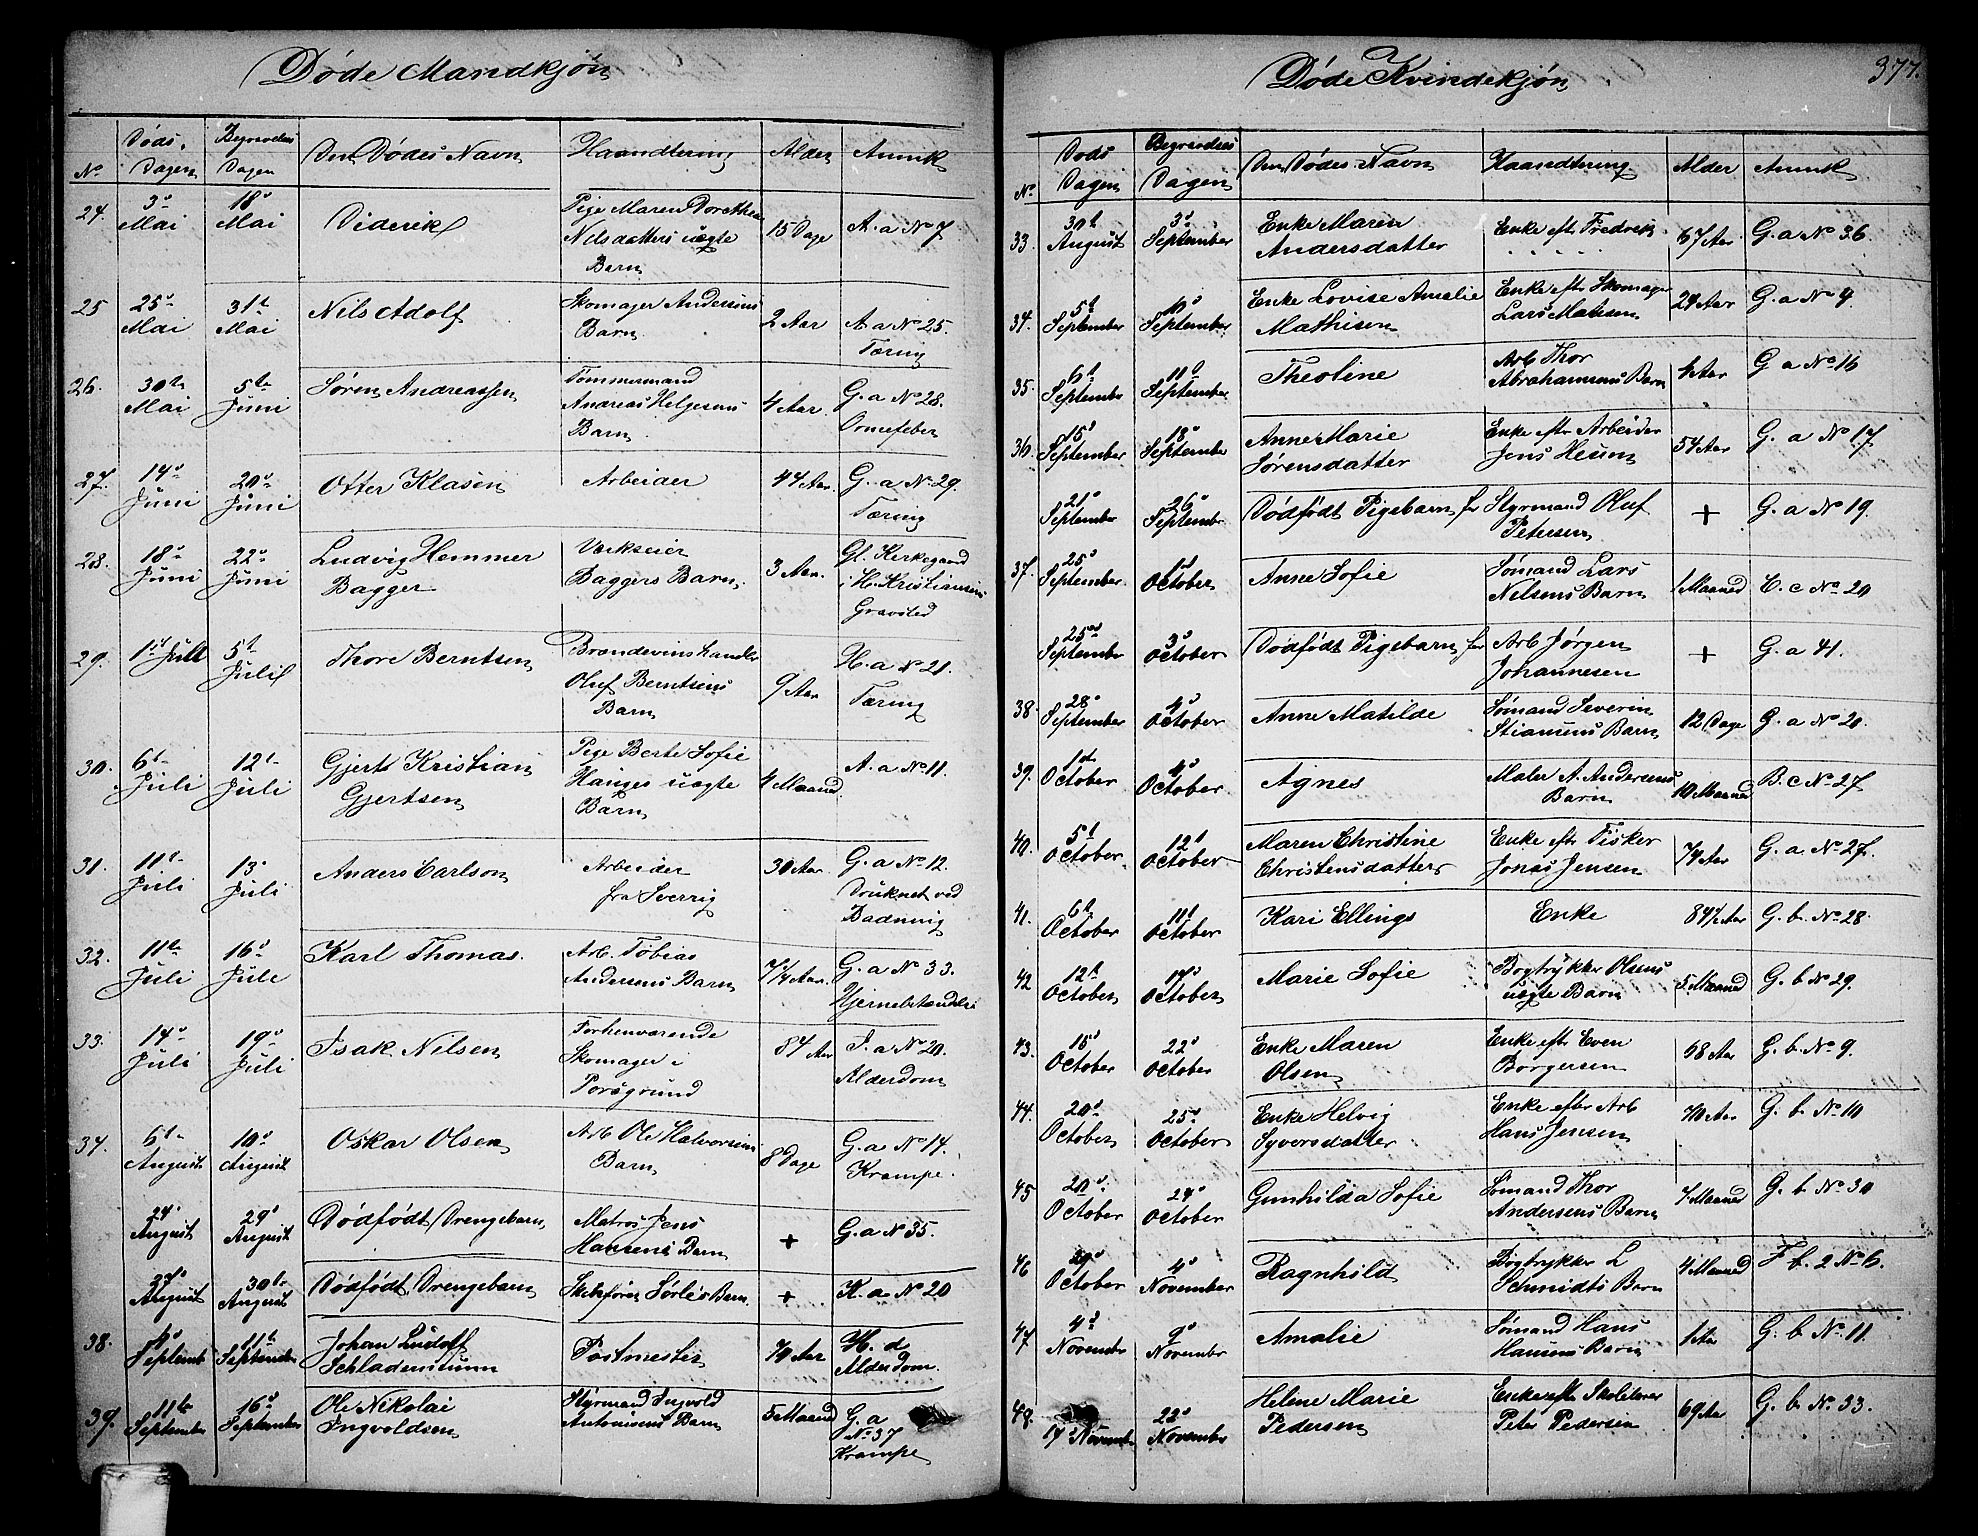 Døde Mandkjøn
No
Døds Dagen
Begravelses Dagen
Den Dødes Navn
Haandtering
Alder
Anmk
24. 3d Mai 18d Mai Diderik Pige Maren Dorothea Nilsdatters uægte Barn 15 Dage A. a No 7
25 25d Mai 31t Mai Nils Adolf Skomager Andersens Barn 2 Aar A a No 25. Tæring
26. 30te Mai 5te Juni Søren Andreassen Tømmermand Andreas Helgesens Barn 4 Aar. G. a No 28.
27. 14d Juni 20d Juni Otter Klasen Arbeider 44 Aar. G. a No 29. Tæring
28. 18d Juni 22d Juni Ludvig Hemmer Bagger Værkseier Baggers Barn. 3 Aar. Gl. Kirkegaard i H. Kristiansens Gravsted
29. 1st Juli 5t Juli Thore Berntsen Brændevinshandler Oluf Berntsens Barn 9 Aar H. a No 21. Tæring
30. 6te Juli 12te Juli Gjert Kristian Gjertsen Pige Berte Sofie Hauges uægte Barn 4 Maaned A. a No 11.
31. 11te Juli 13d Juli Anders Carlson Arbeider fra Sverrig 30 Aar. G. a No 12. Druknet ved Badning
32. 11te Juli 16d Juli Karl Thomas. Arb. Tobias Andersens Barn 7 1/4 Aar. G. a No 33. Hjernebetændelse
33. 14d Juli 19d Juli Isak Nilsen Forhenværende Skomager i Porsgrund 84 Aar I. a No 20. Alderdom
34. 6te August 10d August Oskar Olsen Arb Ole Halvorsens Barn 8 Dage G. a No 14. Krampe.
24d August 29d August Dødfødt Drengebarn Matros Jens Hansens Barn + G. a No 35.
27d August 30te August Dødfødt Drengebarn Skibsfører Sørlis Barn. + K. a No 20
38. 4d Septemb 11te September Johan Ludolf Schladermunn Postmester 70 Aar H. d Alderdom.
39. 11te September 16d September Ole Nikolai Ingvoldsen Styrmand Ingvold Antonisens Barn 5 Maaned G. a No 37 Krampe
Døde Kvindekjøn
377.
No
Døds Dagen
Begravelses Dagen
Den Dødes Navn
Haandtering
Alder
Anmk
33. 30t August 3d September Enke Maren Andersdatter Enke eftr Fredrik . . . . 67 Aar G. a No 36.
34. 5t September 10d September Enke Lovise Amalie Mathisen Enke eftr Skomager Lars Matisen 24 Aar G. a No 4
35. 6t September 11t September Theoline Arb Thor Abrahamsens Barn 4 Aar G a No 16
36. 15d September 18d September Anne Marie Sørensdatter Enke eftr Arbeider Jens 54 Aar G. a No 17
21d September 26d September Dødfødt Pigebarn fr Styrmand Oluf Petersen + G. a No 19.
37. 25d September 1st October Anne Sofie Sømand Lars Nilsens Barn 1 Maaned C. c No 20
25de September 3d October Dødfødt Pigebarn for Arb Jørgen Johannesen + G. a 41.
38. 28d September 4d October Anne Matilde Sømand Severin Stiansens Barn 12 Dage G. a No 20.
39. 1st October 4d October Agnes Maler A. Andersens Barn 10 Maaned B. c No 27
40. 5t October 12t October Maren Christine Christensdatter Enke eftr Fisker Jonas Jensen 74 Aar G. a. No 27.
41. 6t October 11t October Kari Ellings Enke 84 1/2 Aar G. b. No 28.
42 12t October 17d October Marie Sofie Bogtrykker Olsens uægte Barn 5 Maaned G. b No 29.
43. 15d October 22d October Enke Maren Olsen Enke eftr Even Borgersen 68 Aar G. b. No 9.
44. 20d October 25d October Enke Helvig Syversdatter Enke efter Arb Hans Jensen 70 Aar G. b. No 10
45 20d October 24d October Gunhilda Sofie Sømand Thor Andersens Barn 7 Maaned G. b. No 30
46 29d October 4d November Ragnhild Bogtrykker L Schmidts Barn 4 Maaned F b. 2 No 6.
47 4d November 9d November Amalie Sømand Hans Hansens Barn 1 Aar G. b. No 11.
48. 17d November 23d November Helene Marie Pedersen Enke eftr Skolelærer Peter Pedersen 69 Aar G. b. No 33.